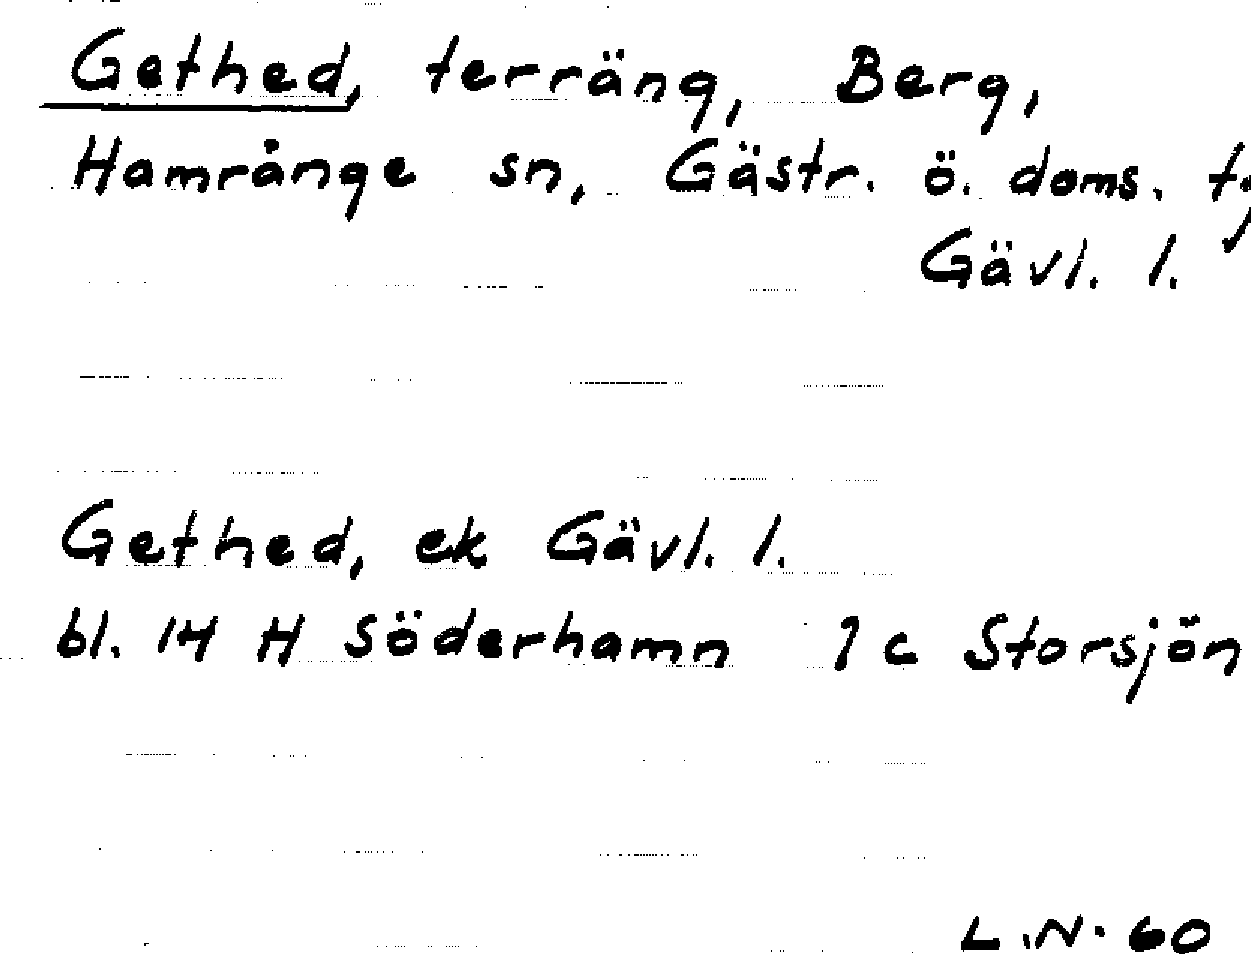 Gethed, terräng, Berg,
Hamrånge sn, Gästr. ö. doms. t.,
Gävl. l.
Gethed, ek Gävl. l.
bl. 14 H Söderhamn 1 c Storsjön
L.N. 60